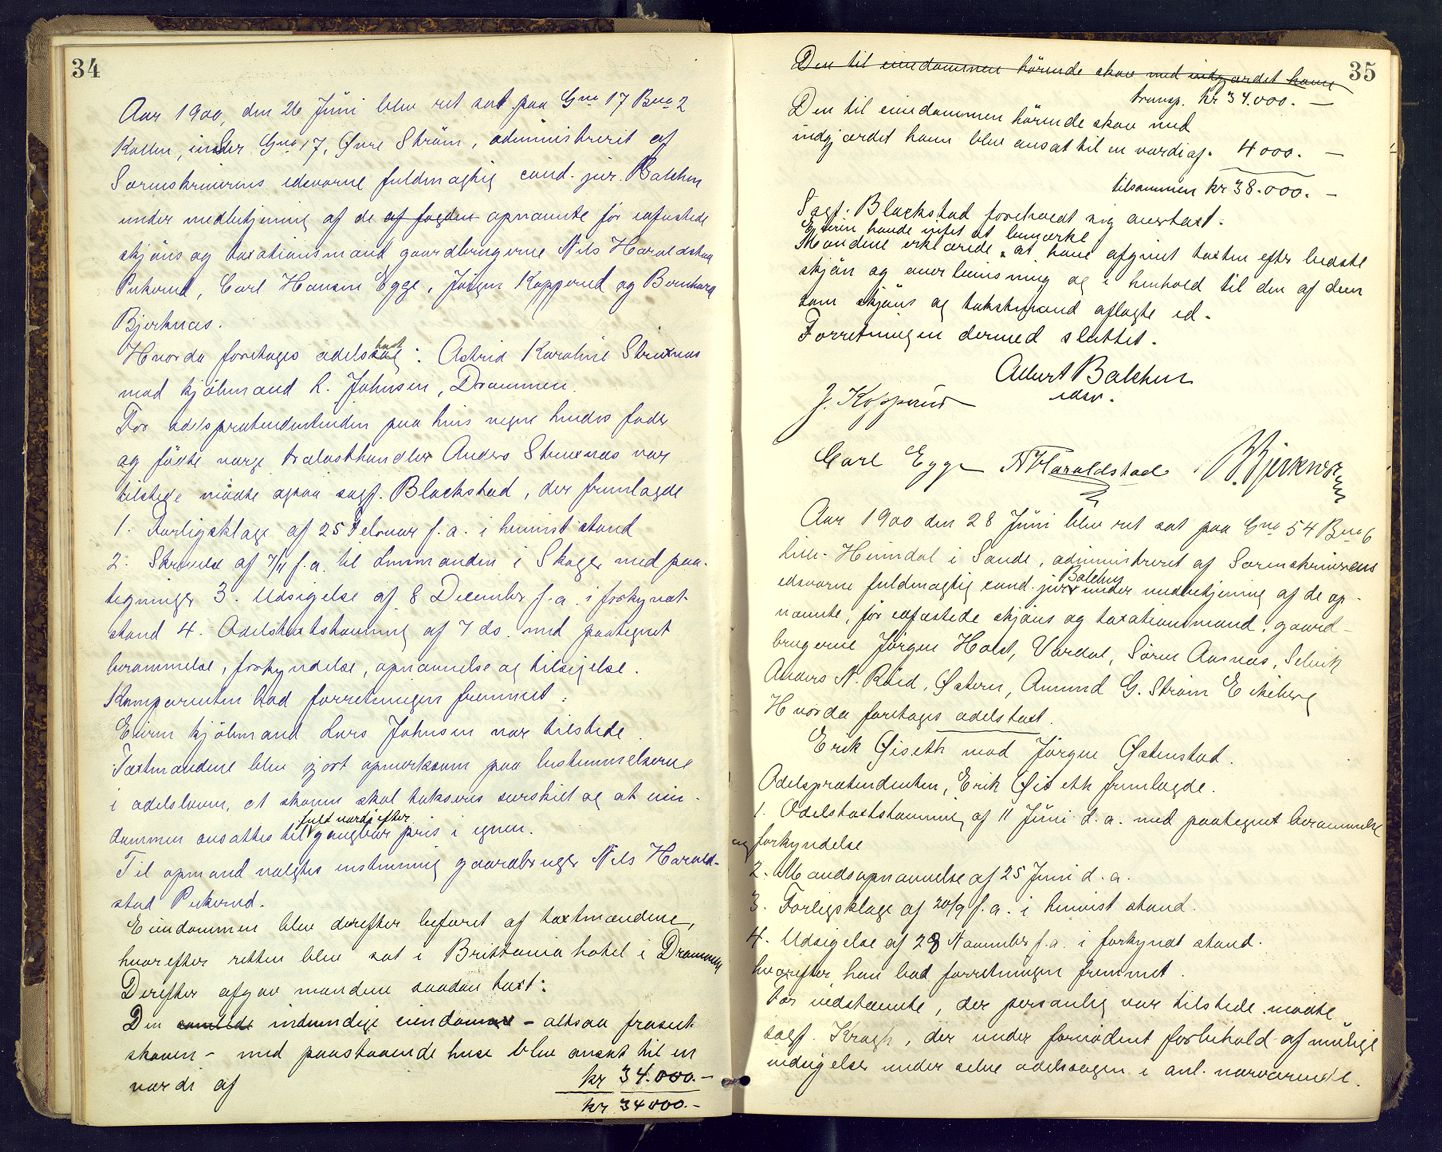 34
Aar 1900, den 26 Juni blev ret sat paa Gno 17 Bno 2
Kollen, under Gno 17, Øvre Strøm, administreret af
Sorenskriverens edsvorne fuldmægtig cand. jur. Balchen
under medbetjening af de af fogden opnævnte før edfæstede
skjøns og taxationsmænd gaardbrugerne Nils Haraldstad
Pukerud, Carl Hansen Egge, Jørgen Kopperud og Bernhard
Bjerknæs.
Hvorda foretoges odelstaxt: Astrid Karoline Strøxnæs
mod kjøbmand L. Johnsen, Drammen.
For odelsprætendentinden paa hvis vegne hendes fader
og fødte værge trælasthandler Anders Strøxnæs var
tilstede mødte ogsaa sagf. Blackstad, der fremlagde
1. Forligsklage af 25 Februar f.a. i henvist stand
2. Skrivelse af 7/11 f.a. til lensmanden i Skoger med paa-
tegninger 3. Udsigelse af 8 December f.a. i forkyndt
stand 4. Odelstaxtstævning af 7 ds. med paategnet
berammelse, forkyndelse, opnævnelse og tilsigelse.
Komparenten bad forretningen fremmet:
Eieren kjøbmand Lars Johnsen var tilstede.
Taxtmændene blev gjort opmerksom paa bestemmelserne
i odelsloven, at skoven skal takseres særskilt og at eien-
fuld værdi efter
dommen ansættes til gangbar pris i egnen.
Til opmand valgtes enstemmig gaardbruger Nils Harald-
stad Pukerud.
Eiendommen blev derefter befaret af taxtmændene,
hvorefter retten blev sat i Brittania hotel i Drammen
Derefter afgav mændene saadan taxt:
Den samlede indvendige eiendom – altsaa fraseet
skoven – med paastaaende huse blev ansat til en
værdi af kr 34.000.–
kr 34000.–
35
Den til eiendommen hørende skov med indgjærdet havn
transp. kr 34.000. –
Den til eiendommen hørende skov med
indgjærdet havn blev ansat til en værdi af. 4000. –
tilsammen kr 38.000. –
Sagf. Blackstad foreholdt sig overtaxt.
Eieren havde intet at bemærke
Mændene erklærede, at have afgivet taxten efter bedste
skjøn og overbevisning og i henhold til den af dem
som skjøns og takstmænd aflagte ed.
Forretningen dermed sluttet.
Albert Balchen
edsv.
J. Kopperud
Carl Egge N Haraldstad B. Bjerknæs
Aar 1900 den 28 Juni blev ret sat paa Gno 54 Bno 6
Heimdal i Sande, administreret af Sorenskriverens
Balchen
edsvorne fuldmægtig cand. jur. under medbetjening af de op-
nævnte, før edfæstede skjøns og taxationsmænd, gaard-
brugerne Jørgen Holst, Vardal, Søren Aasnæs, Selvik
Anders N. Røed, Østern, Amund G. Strøm Ekeberg
Hvorda foretoges odelstaxt.
Erik Øiseth mod Jørgen Østenstad.
Odelsprætendenten, Erik Øiseth fremlagde.
1. Odelstaxtstævning af 11 Juni d.a. med paategnet berammelse
og forkyndelse
2. Mandsopnævnelse af 25 Juni d.a.
3. Forligsklage af 20/9 f.a. i henvist stand.
4. Udsigelse af 28 November f.a. i forkyndt stand.
hvorefter han bad forretningen fremmet.
For indstævnte, der personlig var tilstede mødte
sagf. Kragh, der under fornødent forbehold af mulige
indsigelser under selve odelssagen i anl. nærværende